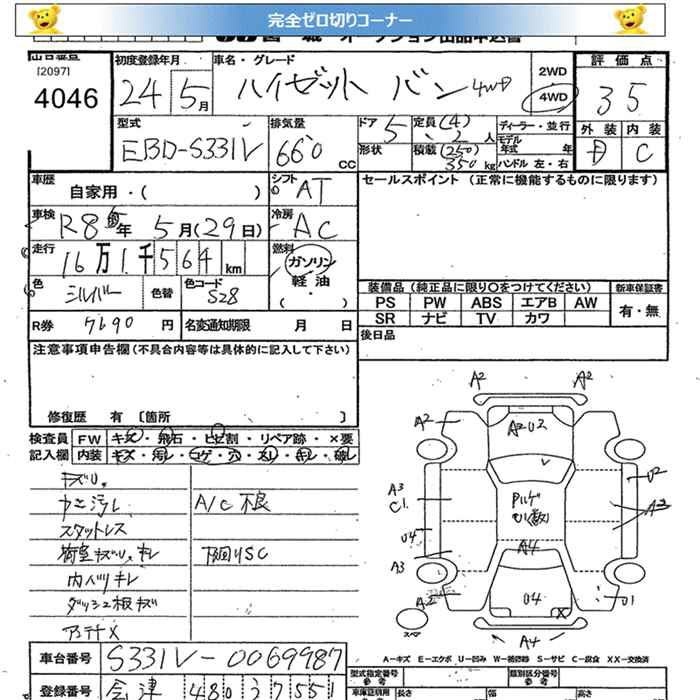 完全ゼロ切りコーナー
出品申込書
出品番号 初度登録年月 車名・グレード 2WD 評価点
[2097]
4046 24 5月 ハイゼット バン 4WD 4WD 35
型式 排気量 ドア 定員(4) ディーラー・並行 外装 内装
EBD-S331V 660 CC 5 2人 モデル年式 年 C
形状 積載(250) 350kg ハンドル 左・右
車歴 シフト セールスポイント(正常に機能するものに限ります)
自家用・( ) AT
車検 冷房
R8年 5月(29日) AC
走行 燃料
16万1千564km ガソリン
軽油
色 色替 色コード ( ・ ) 装備品(純正品に限り○をつけてください) 新車保証書
シルバー S28 PS PW ABS エアB AW 有・無
R券 7690円 名変通知期限 月 日 SR ナビ TV カワ
後日品
注意事項申告欄(不具合内容等は具体的に記入して下さい)
修復歴 有 [箇所 ]
検査員 FW キズ・飛石・ヒビ割・リペア跡・×要
記入欄 内装 キズ・汚レ・コゲ・穴・スレ・キレ・破レ
A2 A2
A2 A2U2
キズU.
A/C 不良
スタットレス
下回りSC
内バリキレ
ダッシュ板キズ
アンテナX
A3
C1
U4
A3
A2
U2
A3
A4
U4
X
U1
A4
スペア
A-キズ E-エクボ U-凹み W-補修跡 S-サビ C-腐食 XX-交換済
車台番号 S331V-0069987 型式指定番号 類別区分番号
登録番号 会津 480 う 7551 車庫証明用参考 長さ 幅 高さ